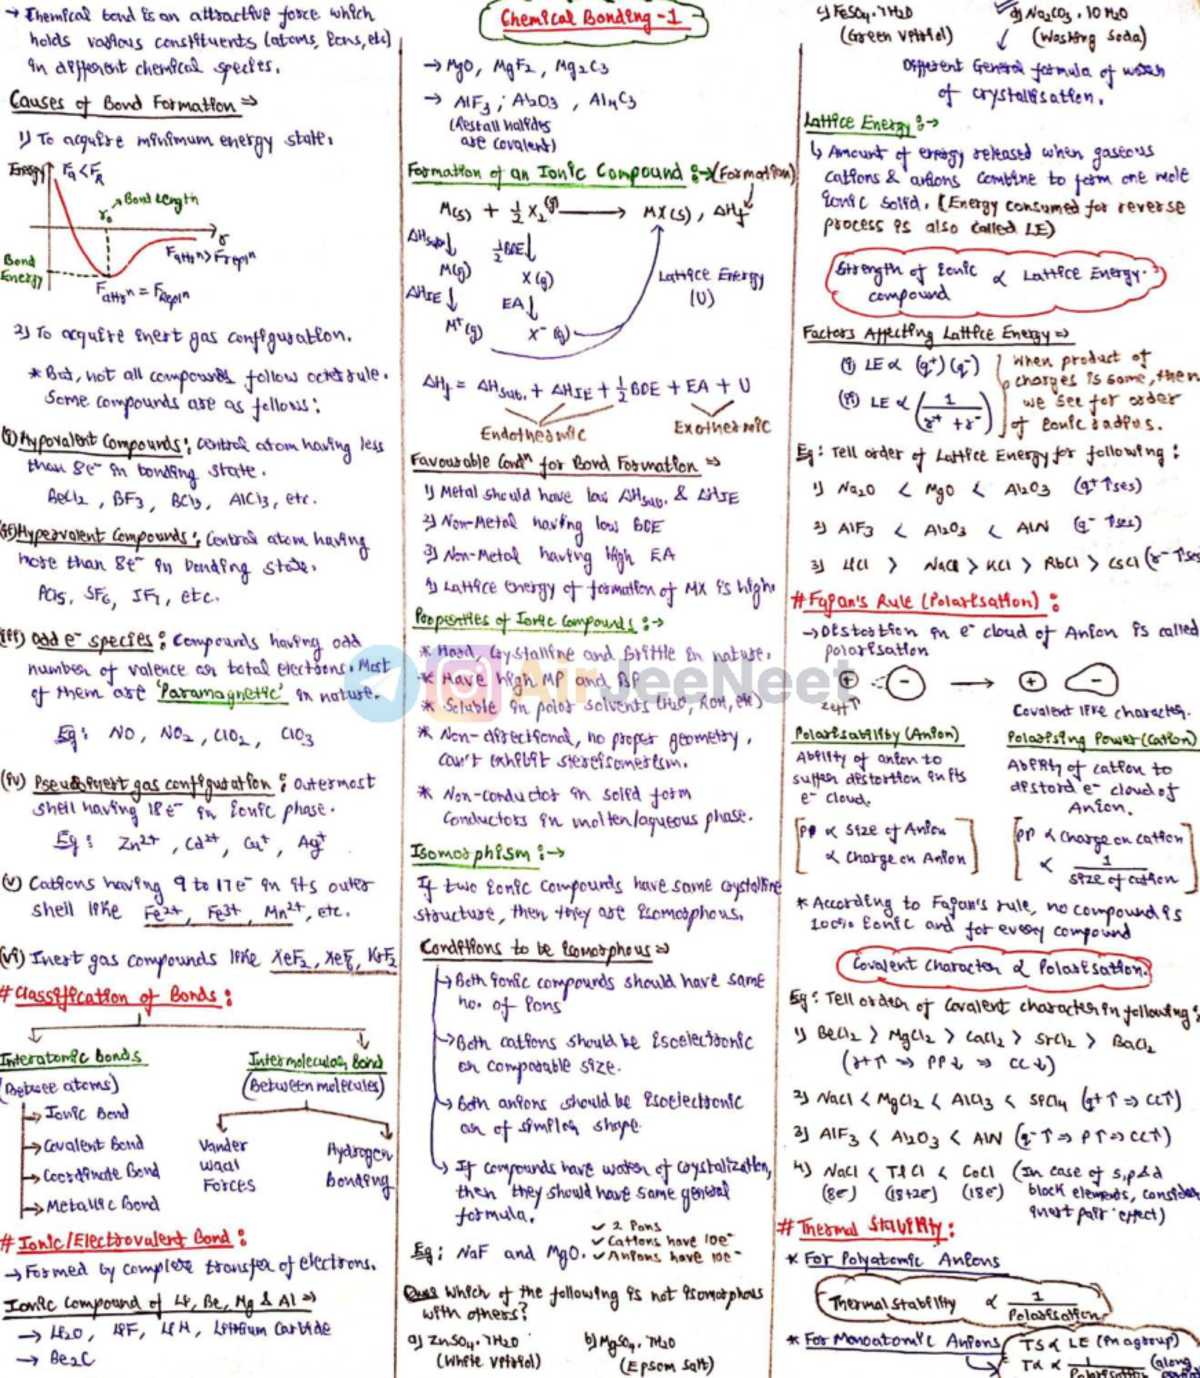 → Chemical bond is an attractive force which
holds various constituents (atoms, ions, etc)
in different chemical species.
Causes of Bond Formation ⇒
1) To acquire minimum energy state.
Energy
Fa < FR
Bond Length
r₀
r
Bond
Energy
Fattrⁿ > Freplⁿ
Fattrⁿ = FReplⁿ
2) To acquire inert gas configuration.
* But, not all compounds follow octet rule.
Some compounds are as follows:
(i) Hypovalent Compounds: Central atom having less
than 8e⁻ in bonding state.
BeCl₂, BF₃, BCl₃, AlCl₃, etc.
(ii) Hypervalent Compounds: Central atom having
more than 8e⁻ in bonding state.
PCl₅, SF₆, IF₇, etc.
(iii) Odd e⁻ species: Compounds having odd
number of valence or total electrons. Most
of them are 'Paramagnetic' in nature.
Eg: NO, NO₂, ClO₂, ClO₃
(iv) Pseudo inert gas configuration: Outermost
shell having 18e⁻ in ionic phase.
Eg: Zn²⁺, Cd²⁺, Cu⁺, Ag⁺
(v) Cations having 9 to 17e⁻ in its outer
shell like Fe²⁺, Fe³⁺, Mn²⁺, etc.
(vi) Inert gas compounds like XeF₂, XeF₆, KrF₂
# Classification of Bonds:
Interatomic bonds
(Between atoms)
→ Ionic Bond
→ Covalent Bond
→ Coordinate Bond
→ Metallic Bond
Intermolecular Bond
(Between molecules)
Vander
Waal
Forces
Hydrogen
bonding
# Ionic/Electrovalent Bond:
→ Formed by complete transfer of electrons.
Ionic Compound of Li, Be, Mg & Al ⇒
→ Li₂O, LiF, LiH, Lithium Carbide
→ Be₂C
Chemical Bonding - 1
→ MgO, MgF₂, Mg₂C₃
→ AlF₃, Al₂O₃, Al₄C₃
(Rest all halides
are covalent)
Formation of an Ionic Compound :→ (Formation)
M(s) + ½ X₂(g) → MX(s), ΔHf
ΔHsub ↓
½ BDE ↓
M(g)
X(g)
Lattice Energy
(U)
ΔHIE ↓
EA ↓
M⁺(g)
X⁻(g)
ΔHf = ΔHsub. + ΔHIE + ½ BDE + EA + U
Endothermic
Exothermic
Favourable Condⁿ for Bond Formation ⇒
1) Metal should have low ΔHsub. & ΔHIE
2) Non-Metal having low BDE
3) Non-Metal having high EA
4) Lattice energy of formation of MX is high
Properties of Ionic Compounds :→
* Hard, Crystalline and Brittle in nature.
* Have high MP and BP
* Soluble in polar solvents (H₂O, ROH, etc)
* Non-directional, no proper geometry,
can't exhibit stereisomerism.
* Non-conductor in solid form
Conductors in molten/aqueous phase.
Isomorphism :→
If two ionic compounds have same crystalline
structure, then they are isomorphous.
Conditions to be isomorphous ⇒
→ Both ionic compounds should have same
no. of ions
→ Both cations should be isoelectronic
or comparable size.
→ Both anions should be isoelectronic
or of similar shape.
→ If compounds have water of crystalization,
then they should have same general
formula.
Eg: NaF and MgO.
✓ 2 ions
✓ Cations have 10e⁻
✓ Anions have 10e⁻
Ques Which of the following is not isomorphous
with others?
a) ZnSO₄.7H₂O
(White vitriol)
b) MgSO₄.7H₂O
(Epsom salt)
c) FeSO₄.7H₂O
(Green vitriol)
d) Na₂CO₃.10H₂O
(Washing Soda)
Different General formula of water
of crystallisation.
Lattice Energy :→
↳ Amount of energy released when gaseous
cations & anions combine to form one mole
ionic solid. (Energy consumed for reverse
process is also called LE)
Strength of Ionic ∝ Lattice Energy.
compound
Factors Affecting Lattice Energy ⇒
(i) LE ∝ (q⁺)(q⁻)
(ii) LE ∝ (1/r⁺ + r⁻)
When product of
charges is same, then
we see for order
of ionic radius.
Eg: Tell order of Lattice Energy for following:
1) Na₂O < MgO < Al₂O₃ (q⁺ ↑ses)
2) AlF₃ < Al₂O₃ < AlN (q⁻ ↑ses)
3) LiCl > NaCl > KCl > RbCl > CsCl (r⁻ ↑ses
# Fajan's Rule (Polarisation):
→ Distortion in e⁻ cloud of Anion is called
polarisation
Zeff ↑
Covalent like character.
Polarisability (Anion)
Ability of anion to
suffer distortion in its
e⁻ cloud.
PP ∝ Size of Anion
∝ Charge on Anion
Polarising Power (Cation)
Ability of cation to
distord e⁻ cloud of
Anion.
PP ∝ Charge on cation
∝ 1/size of cation
* According to Fajan's rule, no compound is
100% ionic and for every compound
Covalent Character ∝ Polarisation.
Eg: Tell order of Covalent character in following:
1) BeCl₂ > MgCl₂ > CaCl₂ > SrCl₂ > BaCl₂
(r⁺↑ ⇒ PP↓ ⇒ CC↓)
2) NaCl < MgCl₂ < AlCl₃ < SiCl₄ (q⁺↑ ⇒ CC↑)
3) AlF₃ < Al₂O₃ < AlN (q⁻↑ ⇒ P↑ ⇒ CC↑)
4) NaCl < TlCl < CoCl (In case of s,p&d
(8e⁻) (18+2e⁻) (18e⁻) block elements, consider
inert pair effect)
# Thermal Stability:
* For Polyatomic Anions
Thermal Stability ∝ 1/Polarisation
* For Monoatomic Anions
TS ∝ LE (in a group)
T ∝ 1/Polarisation (along
AirJeeNeet